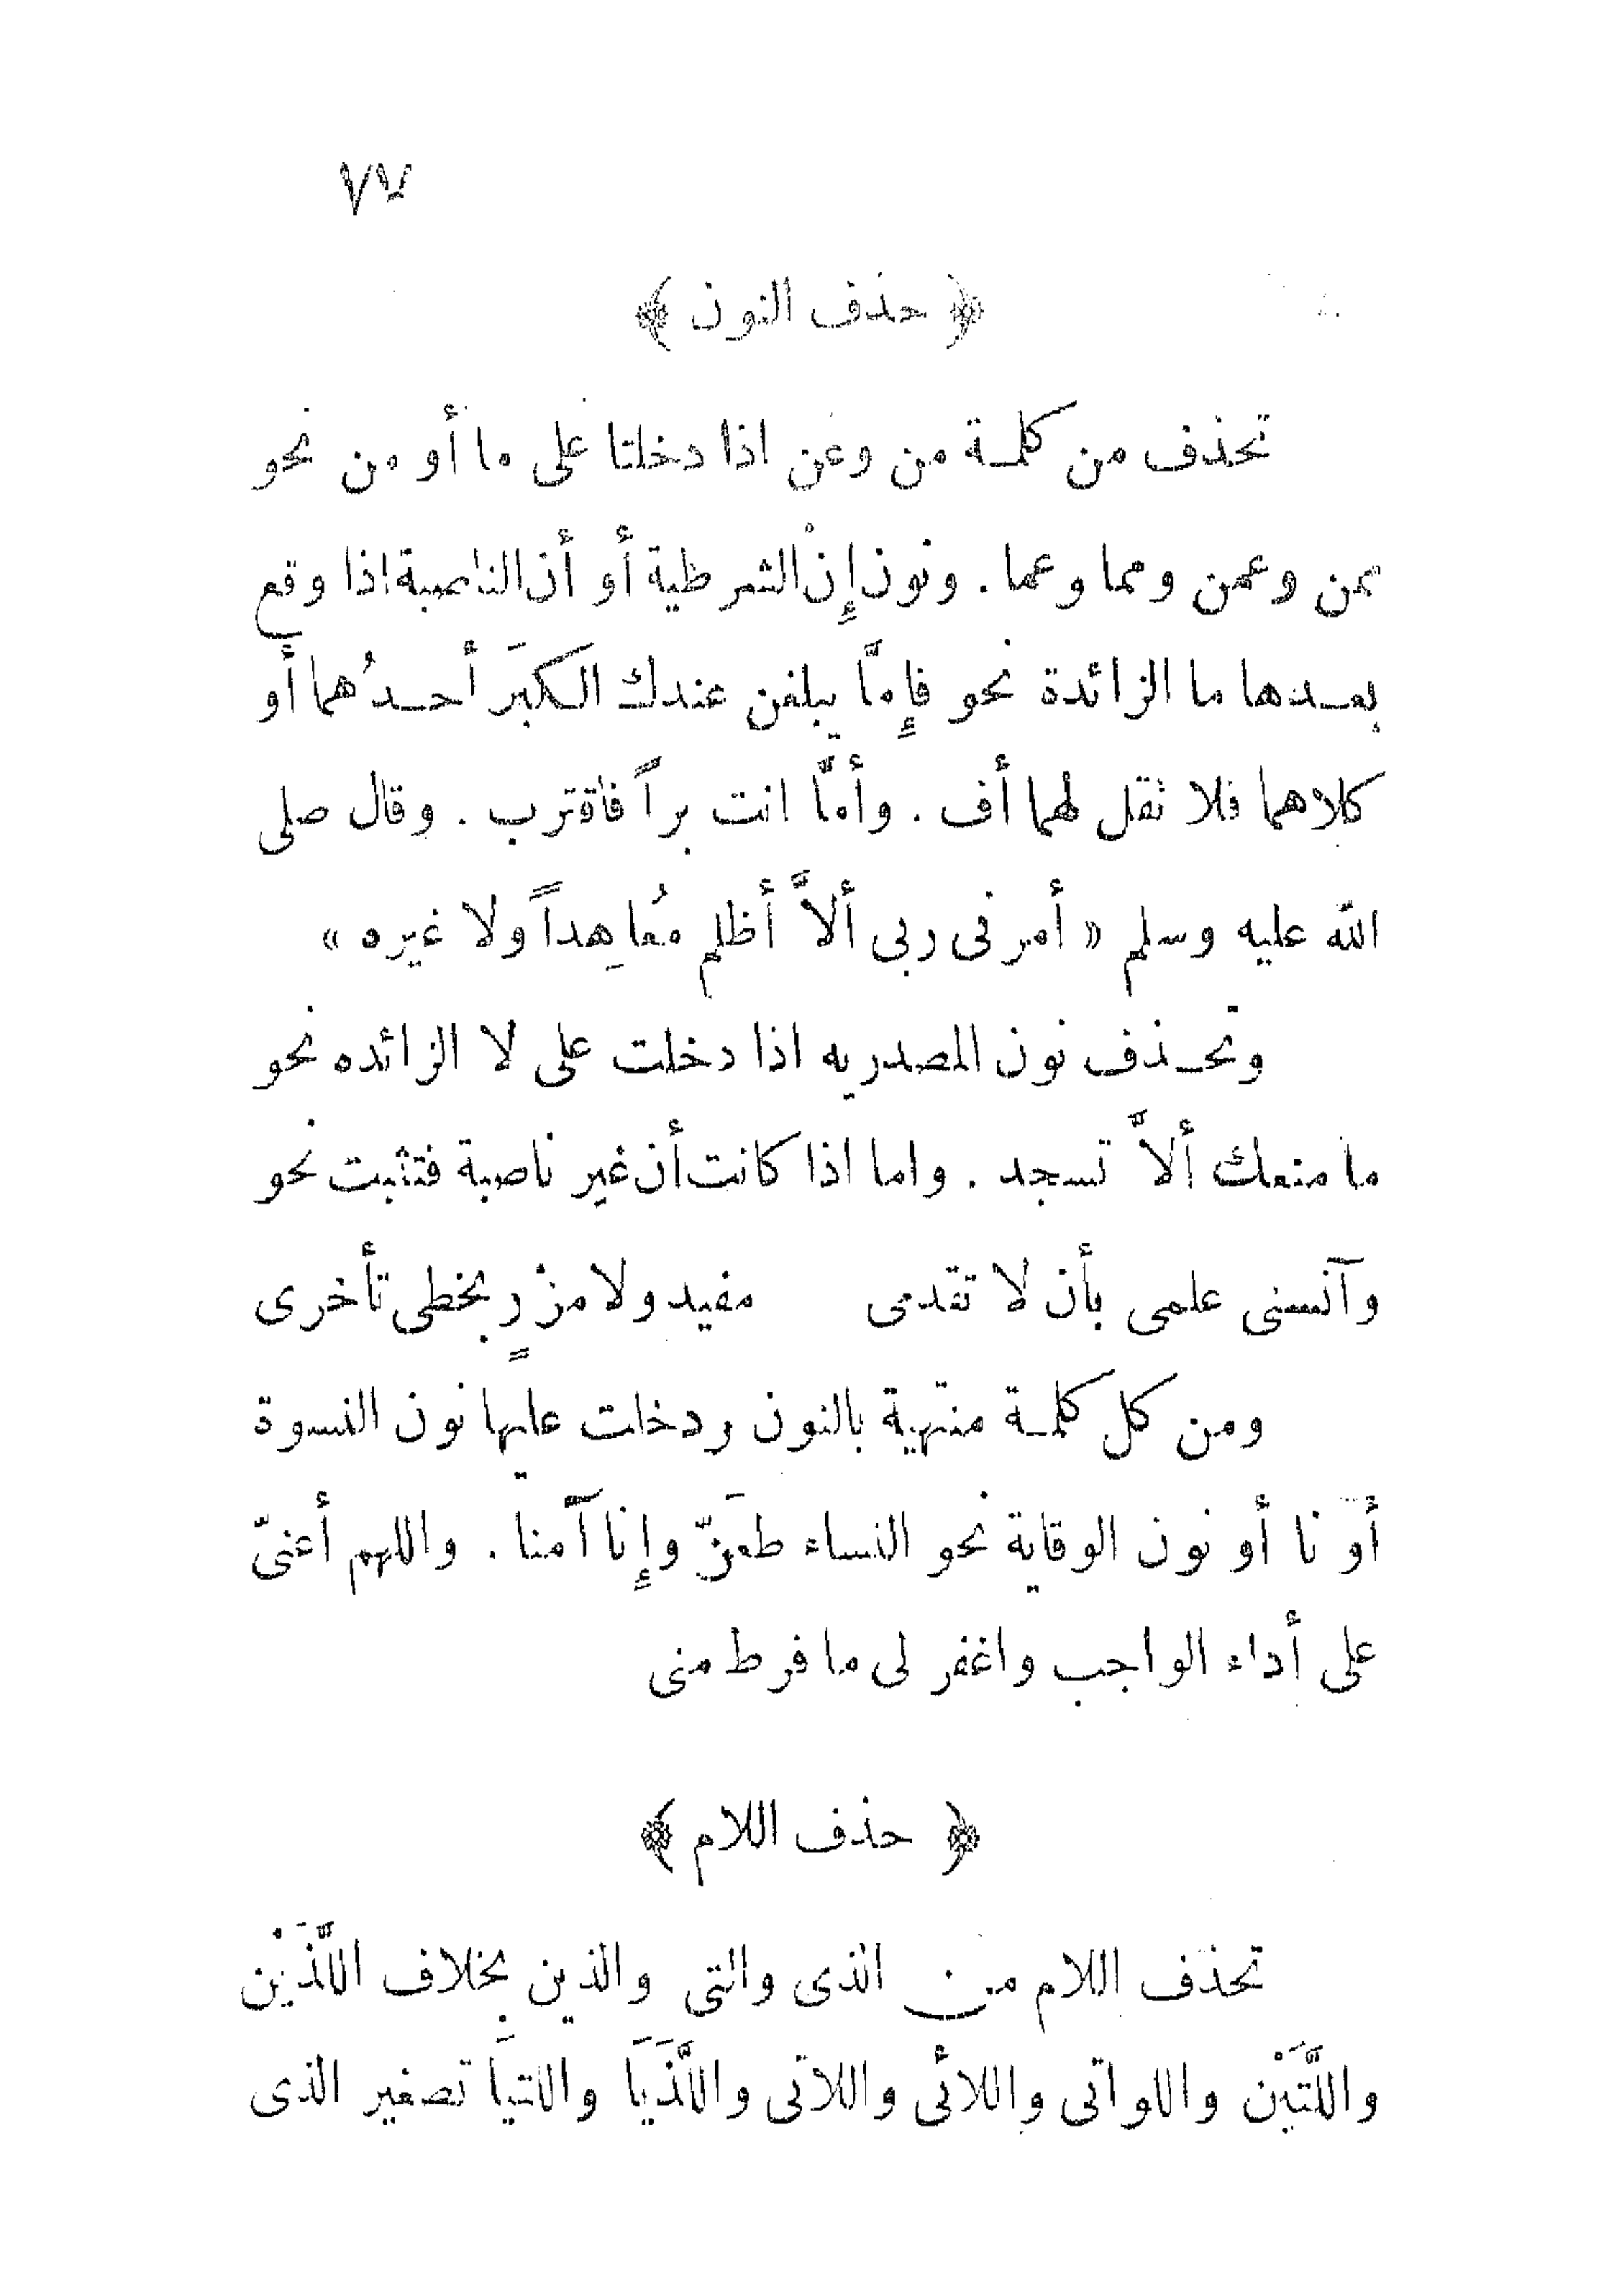 ٧٧
﴿ حذف النون ﴾
تحذف من كلمة من وعن اذا دخلتا على ما أو من نحو
ممن وعمن ومما وعما . ونون إنْ الشرطية أو أن الناصبة اذا وقع
بعدها ما الزائدة نحو فإمَّا يبلغن عندك الكبَر أحدُهما أو
كلاهما فلا تقل لهما أف . وأمَّا انت براً فاقترب . وقال صلى
الله عليه وسلم « أمرنى ربى ألاَّ أظلم مُعاهِداً ولا غيره »
وتحذف نون المصدريه اذا دخلت على لا الزائده نحو
ما منعك ألاَّ تسجد . واما اذا كانت أن غير ناصبة فتثبت نحو
وآنسنى علمى بأن لا تقدمى مفيد ولا مزْرٍ بخطى تأخرى
ومن كل كلمة منتهية بالنون ودخلت عليها نون النسوة
أو نا أو نون الوقاية نحو النساء طعَنّ وإنا آمنا . واللهم أعنىّ
على أداء الواجب واغفر لى ما فرط منى
﴿ حذف اللام ﴾
تحذف اللام من الذى والتى والذين بخلاف اللَّذَيْن
واللَّتَيْن واللواتى واللائى واللاتى واللَّذَيَا واللتيَا تصغير الذى